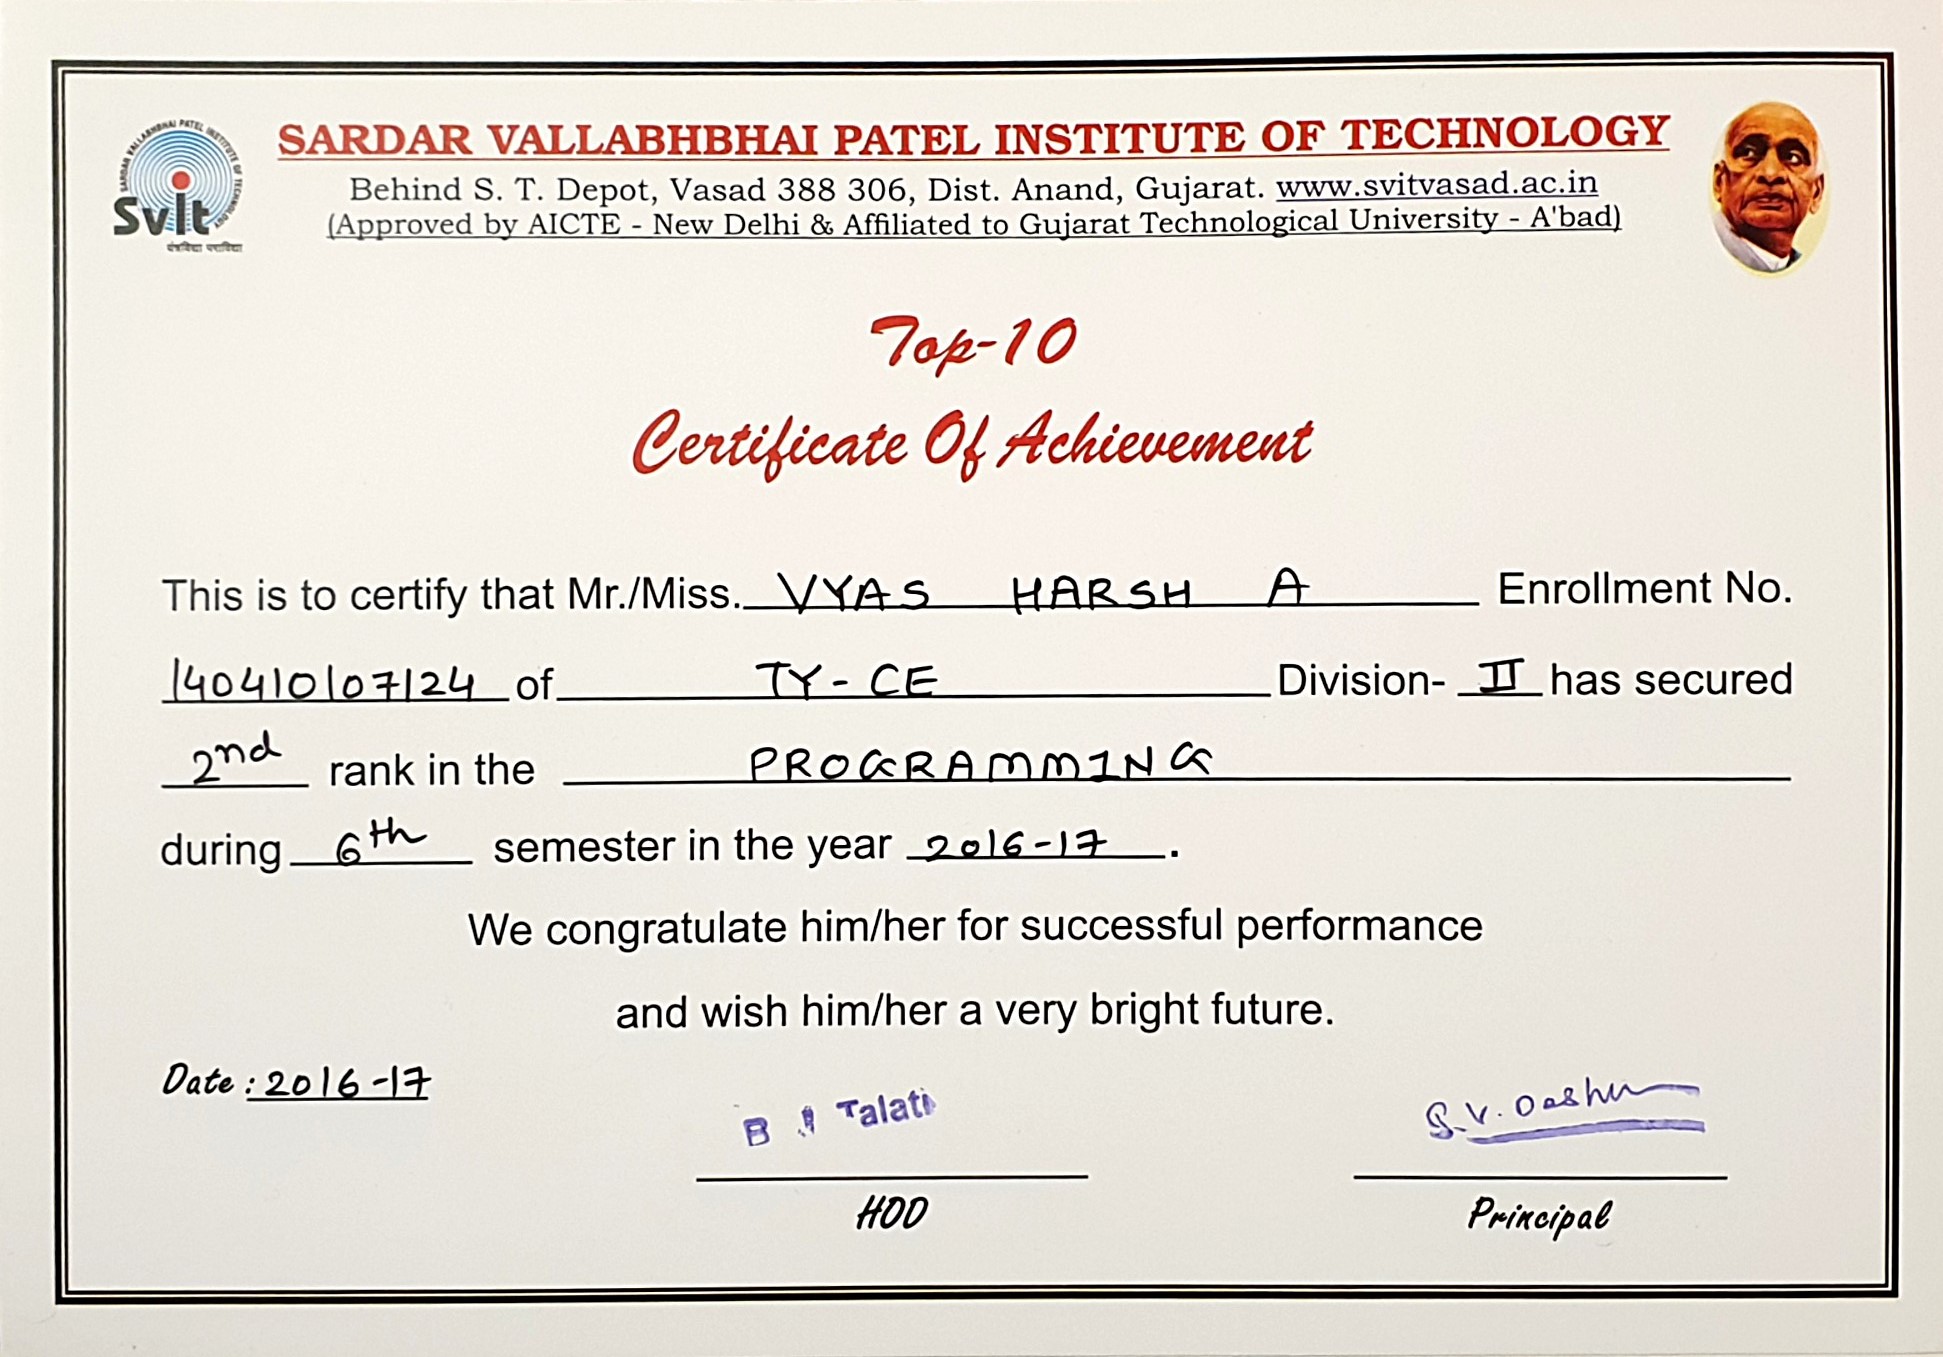 SARDAR VALLABHBHAI PATEL INSTITUTE OF TECHNOLOGY
Behind S. T. Depot, Vasad 388 306, Dist. Anand, Gujarat. www.svitvasad.ac.in
(Approved by AICTE - New Delhi & Affiliated to Gujarat Technological University - A'bad)
SARDAR VALLABHBHAI PATEL INSTITUTE OF TECHNOLOGY
SvIt
Top-10
Certificate Of Achievement
This is to certify that Mr./Miss. VYAS HARSH A Enrollment No.
140410107124 of TY-CE Division- II has secured
2nd rank in the PROGRAMMING
during 6th semester in the year 2016-17.
We congratulate him/her for successful performance
and wish him/her a very bright future.
Date : 2016-17
B Talati
S.V.
HOD
Principal